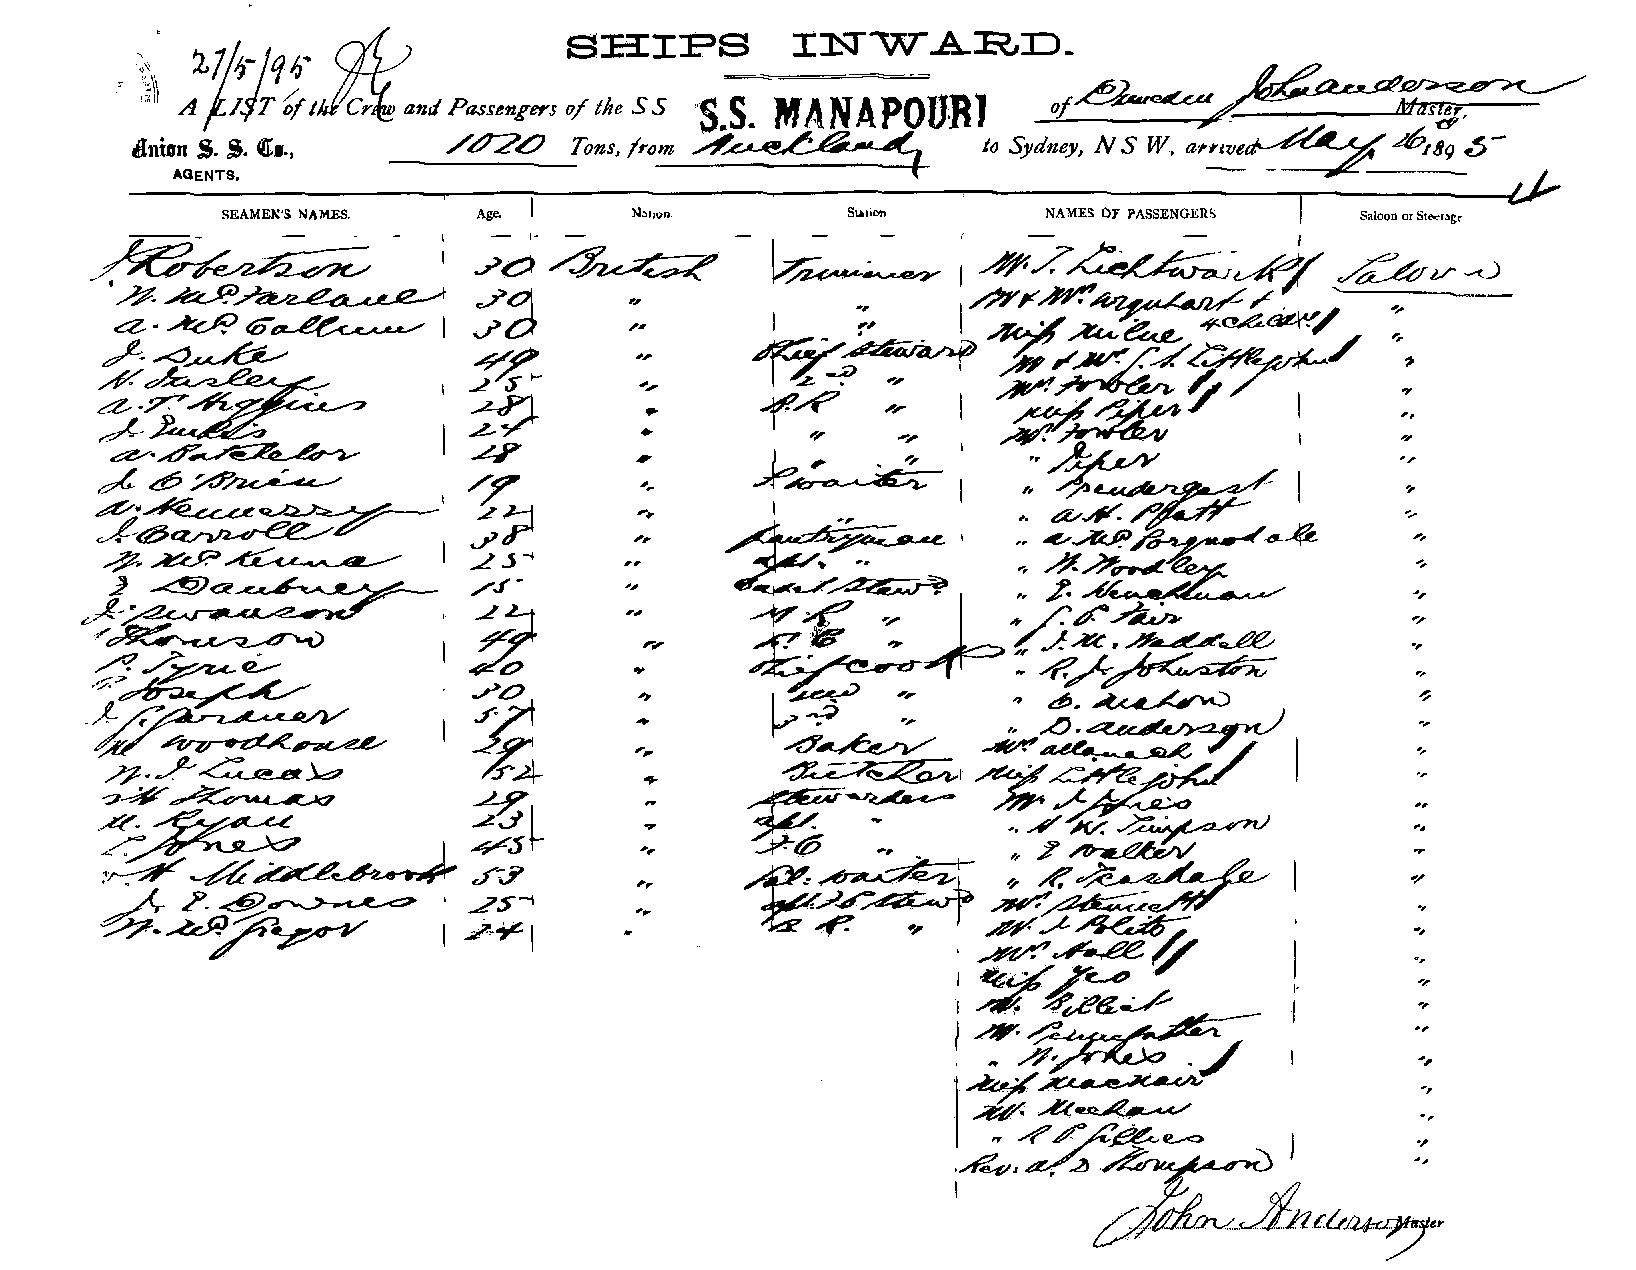 SHIPS INWARD.
27/5/95
A LIST of the Crew and Passengers of the SS S.S. MANAPOURI of Dunedin John Anderson Master,
Union S. S. Co., 1020 Tons, from Auckland to Sydney, N S W, arrived May 26 1895
AGENTS.
SEAMEN'S NAMES. Age. Nation. Station NAMES OF PASSENGERS Saloon or Steerage
J Robertson 30 British Trimmer Mr. T. Lichtwark Saloon
W. McFarlane 30 " " Mr & Mrs Arquhart & 4 Child "
A. McCallum 30 " " Miss Milne "
J. Duke 49 " Chief Steward Mr & Mrs. Littlejohn "
25 " 2nd " Mrs Fowler "
A. T. Higgins 28 " " Miss Piper "
J. 24 " " " Mr. Fowler "
A. Batchelor 28 " " " " Piper "
J. O'Brien 19 " waiter " Prendergast "
A. Hennessy 22 " " " A. H. Pflatt "
J. Carroll 38 " Pantryman " A. "
W. McKenna 25 " " " W. Woodley "
Daubney 15 " Stewd " E. Henchman "
J. Swanson 22 " " " Fair "
Thomson 49 " F. C " " J. M. Waddell "
P. Tyrie 40 " Chief Cook " R. J. Johnston "
Joseph 30 " 2nd " " Mahon "
J. Gardner 57 " 3rd " " D. Anderson "
Woodhouse 29 " Baker Mrs "
W. J. Lucas 52 " Butcher Miss Littlejohn "
Thomas 29 " Stewardess Mr J Jones "
M. Ryan 23 " " " W. Timpson "
Jones 45 " F. C " " E Walker "
H Middlebrook 53 " Sal. waiter " R. "
J. E. Downes 25 " Stewd Mr. "
W. McGregor 24 " B R. " Mr. J Polito "
Mrs Hall "
Miss Yeo "
Mr. "
Mr. Pennefather "
" W. Jones "
Miss MacNair "
Mr. Meehan "
" R P Gillies "
Rev. A. D Thompson "
John Anderson Master